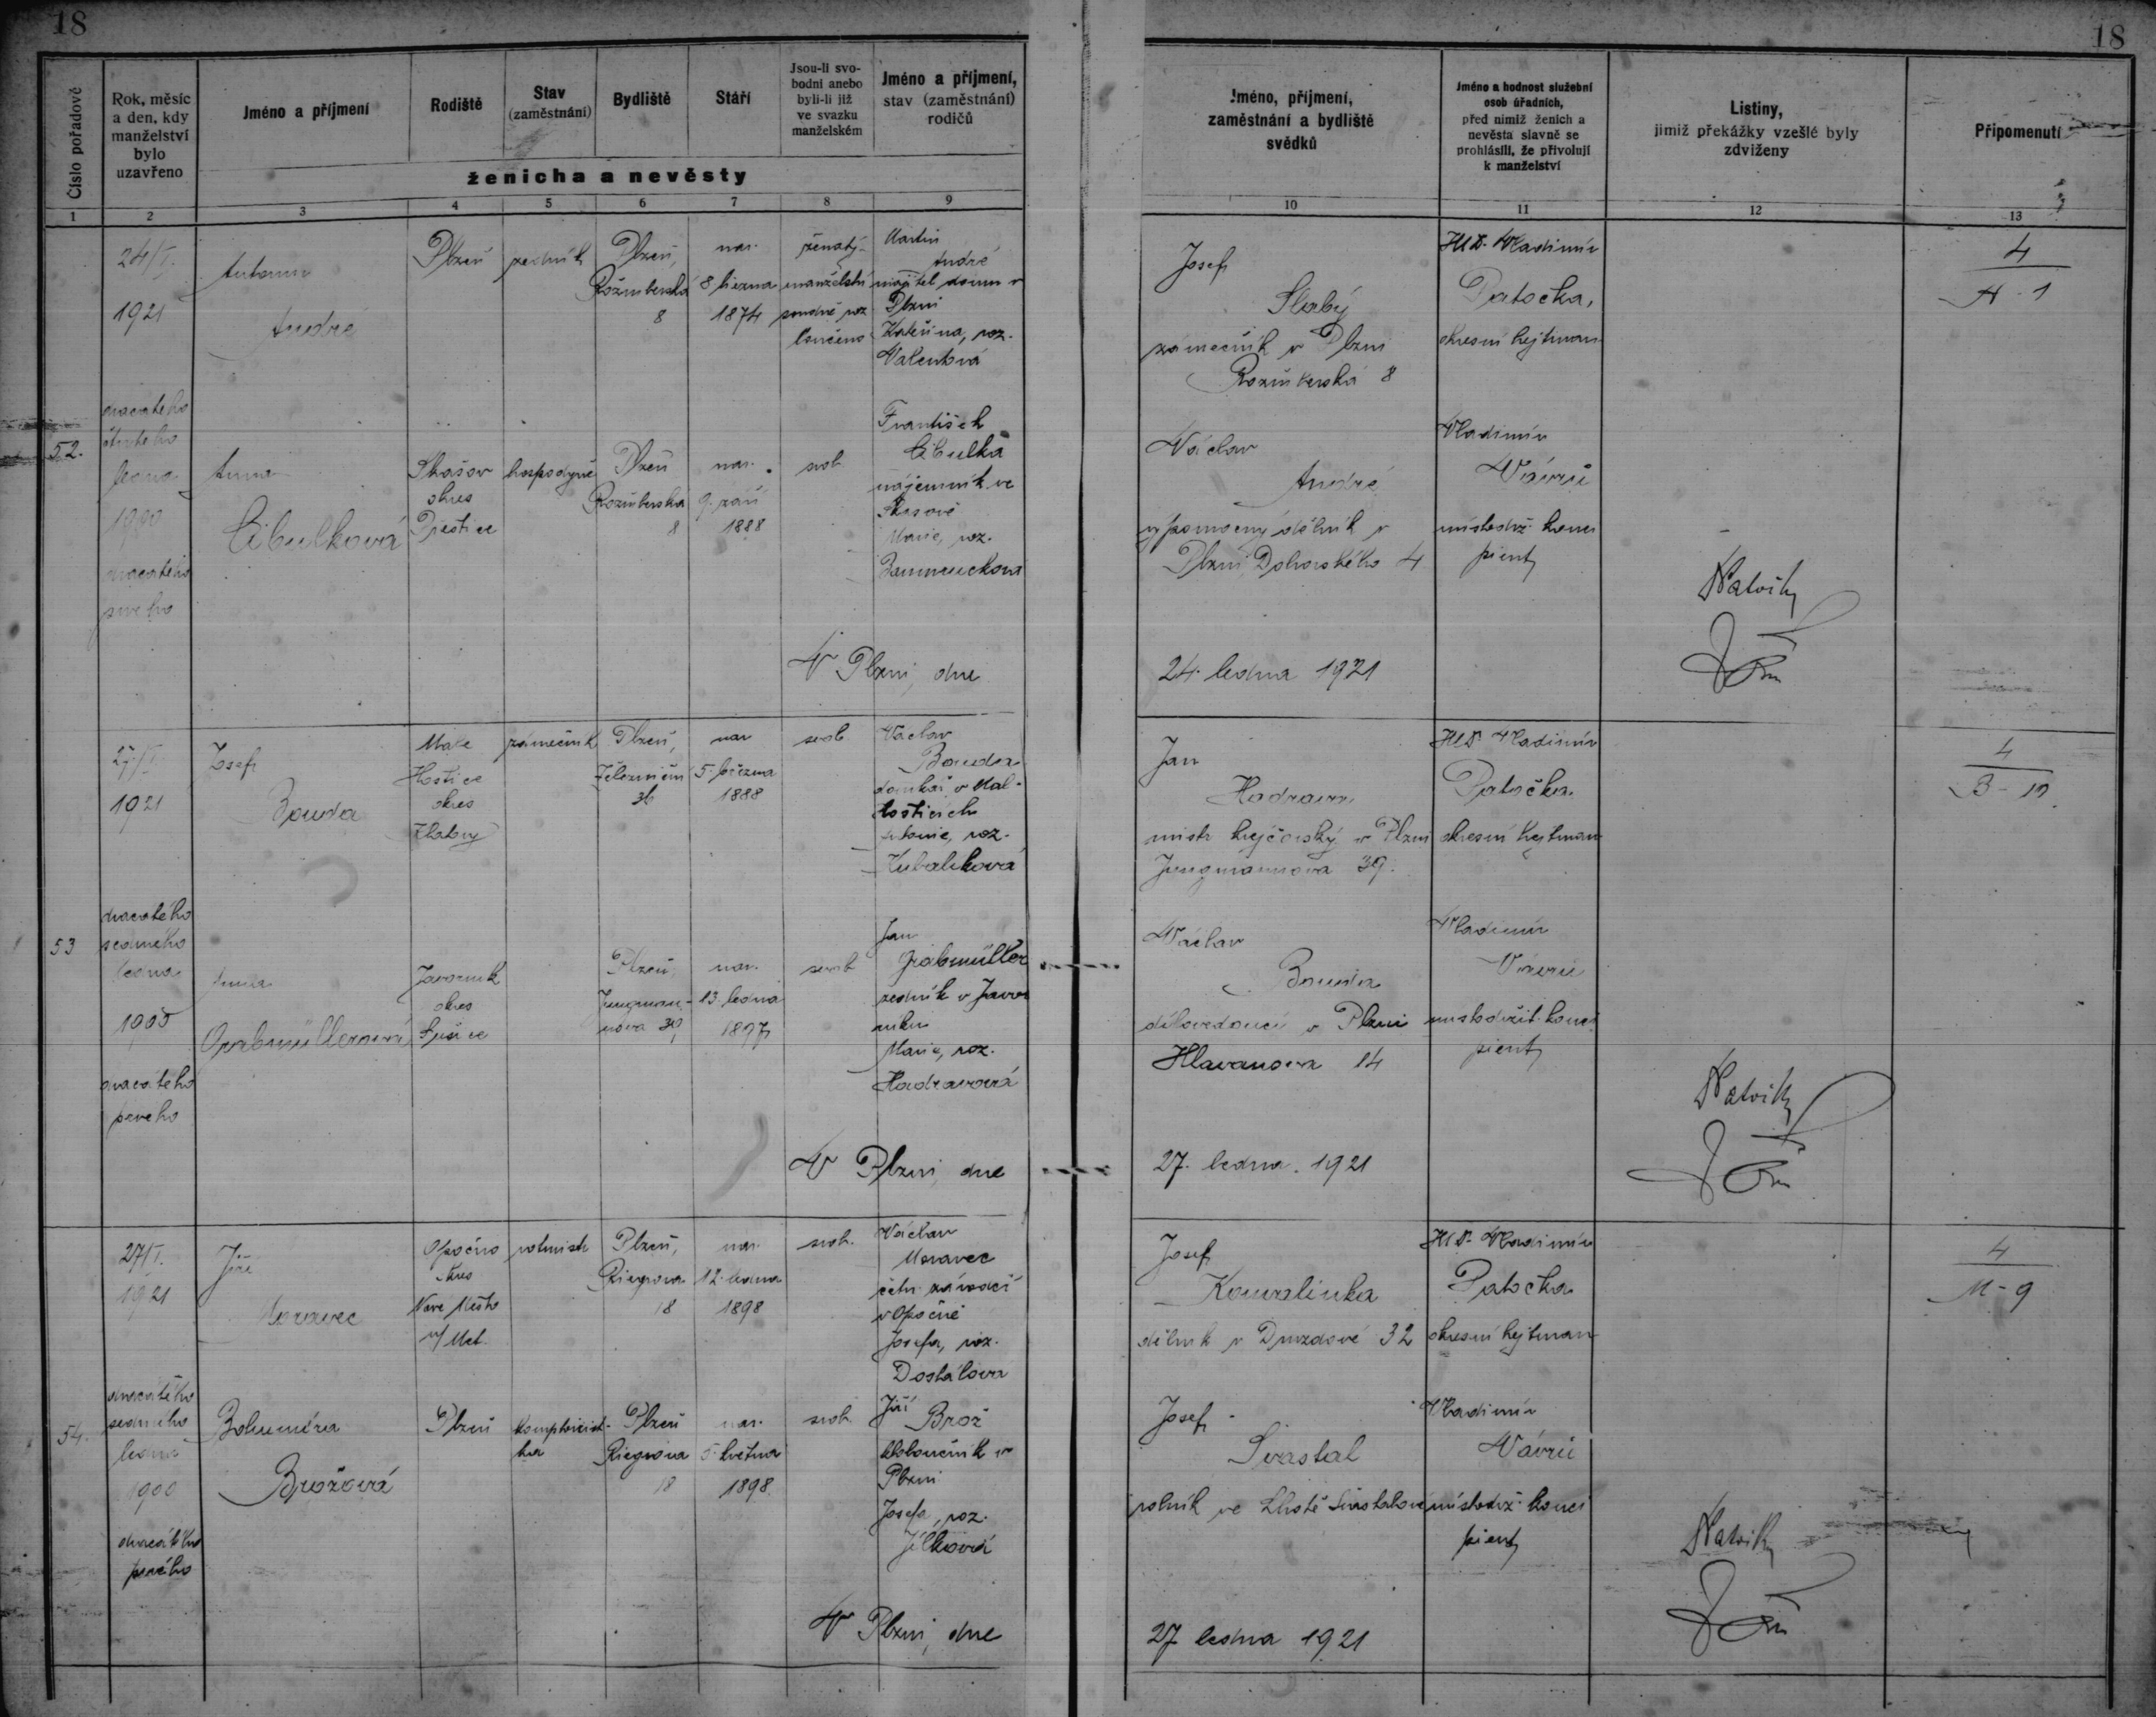 18
18
Číslo pořadové
Rok, měsíc
a den, kdy
manželství
bylo
uzavřeno
Jméno a příjmení
Rodiště
Stav
(zaměstnání)
Bydliště
Stáří
Jsou-li svo-
bodni anebo
byli-li již
ve svazku
manželském
Jméno a příjmení,
stav (zaměstnání)
rodičů
ženicha a nevěsty
Jméno, příjmení,
zaměstnání a bydliště
svědků
Jméno a hodnost služební
osob úřadních,
před nimiž ženich a
nevěsta slavně se
prohlásili, že přivolují
k manželství
Listiny,
jimiž překážky vzešlé byly
zdviženy
Připomenutí
1 2 3 4 5 6 7 8 9 10 11 12 13
52.
24/I.
1921
dvacátého
čtvrtého
ledna
1900
dvacátého
prvého
Antonín
André
Plzeň
zedník
Plzeň,
Rožmberská
8
nar.
8 března
1874
ženatý
manželství
soudně roz
loučeno
Martin
André
majitel domu v
Plzni
Kateřina, roz.
Valentová
Anna
Cibulková
Skašov
okres
Přeštice
hospodyně
Plzeň
Rožmberská
8
nar.
9. září
1888
svob.
František
Cibulka
nájemník ve
Skašově
Marie, roz.
Josef
Slabý
zámečník v Plzni
Rožmberská 8
Václav
André
výpomocný dělník v
Plzni Dobrovského 4
JUDr Vladimír
Patočka,
okresní hejtman
Vladimír
Vávrů
místodrž. konci
pient
4
A-1
V Plzni, dne
24. ledna 1921
53
27/I.
1921
dvacátého
sedmého
ledna
1900
dvacátého
prvého
Josef
Bouda
Malé
Hoštice
okres
Klatovy
zámečník
Plzeň,
Železniční
36
nar
5. března
1888
svob.
Václav
Bouda
domkář v Mal.
Hošticích
Antonie, roz.
Kubalíková
Anna
Grabmüllerová
Javorník
okres
Sušice
Plzeň,
Jungman-
nova 39
nar.
13. ledna
1897
svob
Jan
Grabmüller
zedník v Javor
níku
Marie, roz.
Hadravová
Jan
Hadrava
mistr krejčovský v Plzni
Jungmannova 39.
Václav
Bouda
dílovedoucí v Plzni
Hlavanova 14
JUDr Vladimír
Patočka
okresní hejtman
Vladimír
Vávrů
místodržit. konci
pient
4
B-10
V Plzni, dne
27. ledna. 1921
54.
27/I.
1921
dvacátého
sedmého
ledna
1900
dvacátého
prvého
Jiří
Moravec
Opočno
okres
Nové Město
n/Met.
rotmistr
Plzeň,
Riegrova
18
nar.
12. ledna
1898
svob.
Václav
Moravec
četn. závodčí
v Opočně
Josefa, roz.
Dostálova
Bohumíra
Brožová
Plzeň
kontoristi-
ka
Plzeň
Riegrova
18
nar.
5. května
1898.
svob.
Jiří
Brož
kloboučník v
Plzni
Josefa, roz.
Jílková
Josef
Konvalinka
dělník v Druzdové 32
Josef
Svastal
rolník ve Lhotě
JUDr Vladimír
Patočka
okresní hejtman
Vladimír
Vávrů
místodrž. konci
pient
4
M-9
V Plzni, dne
27 ledna 1921